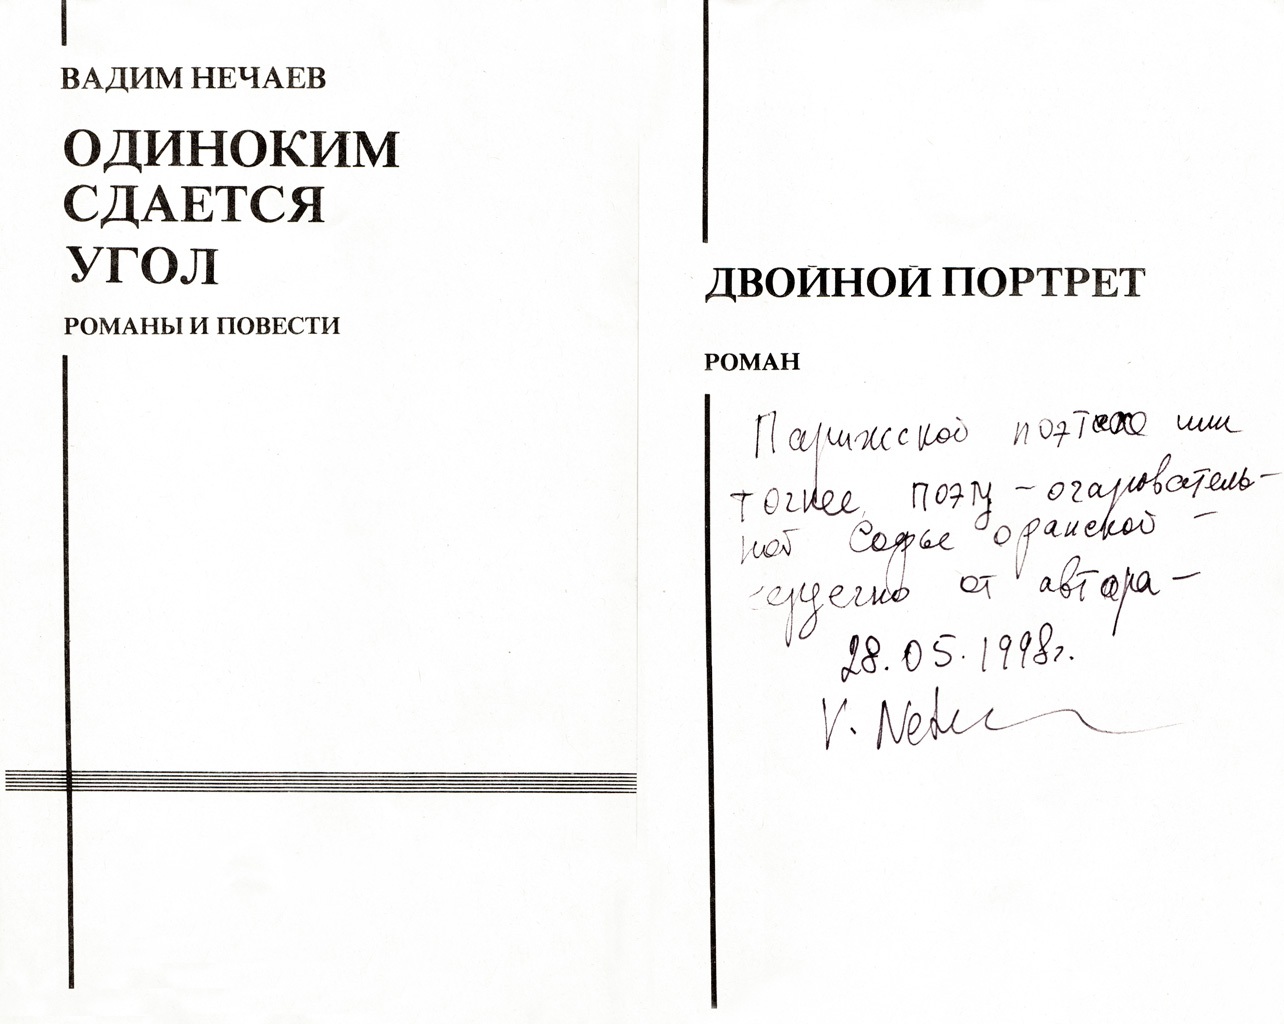 ВАДИМ НЕЧАЕВ
ОДИНОКИМ
СДАЕТСЯ
УГОЛ
РОМАНЫ И ПОВЕСТИ
ДВОЙНОЙ ПОРТРЕТ
РОМАН
Парижской или
точнее, поэту – очарователь-
ной Софье Оранской –
сердечно от автора –
28.05.1998г.
V. Netchaev